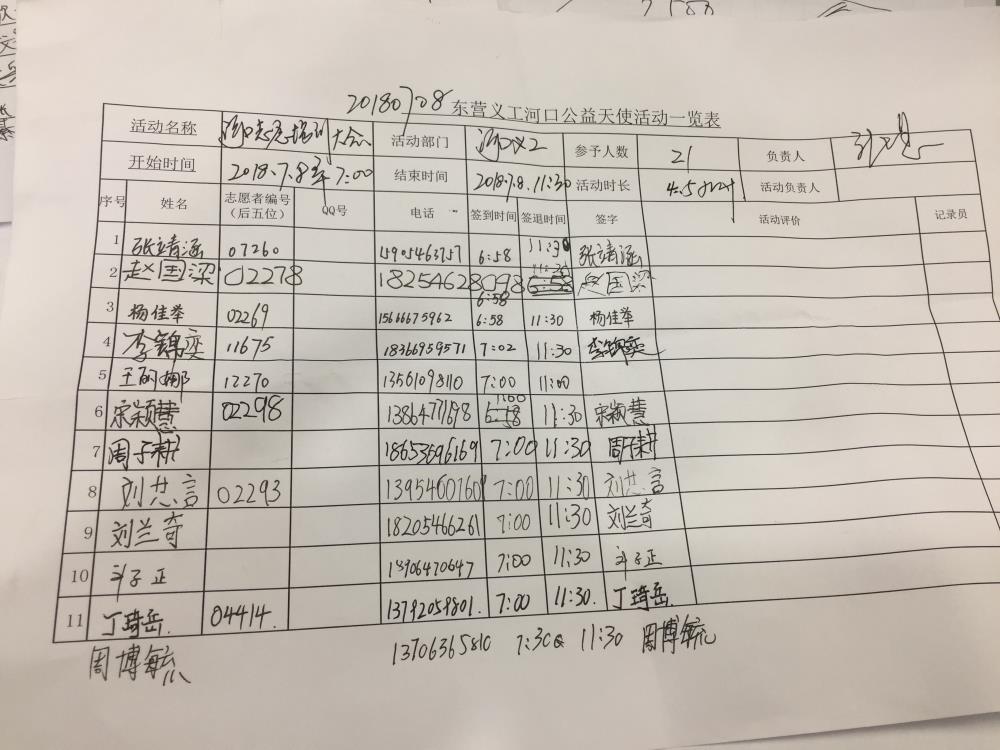 20180708 东营义工河口公益天使活动一览表
活动名称 河口志愿培训大会 活动部门 河口义工 参予人数 21 负责人
开始时间 2018.7.8 7:00 结束时间 2018.7.8.11:30 活动时长 4.5小时 活动负责人
序号 姓名 志愿者编号（后五位） QQ号 电话 签到时间 签退时间 签字 活动评价 记录员
1 张靖涵 07260 15905463757 6:58 11:30 张靖涵
2 赵国梁 02278 18254628098 6:58 11:30 赵国梁
6:58
3 杨佳举 02269 15666675962 6:58 11:30 杨佳举
4 李锦奕 11675 18366959571 7:02 11:30 李锦奕
5 王丽娜 12270 13561098110 7:00 11:00
6 宋颖慧 02298 13864771698 7:00 11:30 宋颖慧
7 周子耕 18653696169 7:00 11:30 周子耕
8 刘恭言 02293 13954600760 7:00 11:30 刘恭言
9 刘兰奇 18205466261 7:00 11:30 刘兰奇
10 子正 13906470647 7:00 11:30 子正
11 丁琦岳. 04414. 13792059801. 7:00 11:30. 丁琦岳.
周博毓 13706365810 7:30 11:30 周博毓